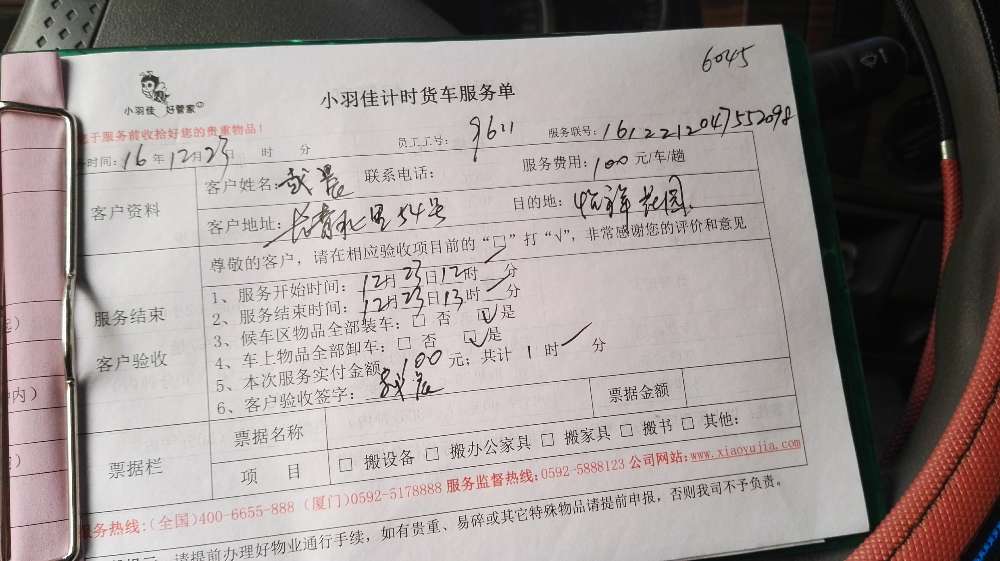 6045
小羽佳 好管家
小羽佳计时货车服务单
于服务前收拾好您的贵重物品！
员工工号： 9611 服务联号：161221204755 2098
时间：16年12月23日 时 分
客户资料
客户姓名： 联系电话： 服务费用：100元/车/趟
客户地址：长青北里54号 目的地：怡祥花园
服务结束
客户验收
尊敬的客户，请在相应验收项目前的“□”打“√”，非常感谢您的评价和意见
1、服务开始时间：12月23日12时 分
2、服务结束时间：12月23日13时 分
3、候车区物品全部装车：□ 否 ☑是
4、车上物品全部卸车：□ 否 ☑是
5、本次服务实付金额 100 元；共计 1 时 分
6、客户验收签字：
票据栏
票据名称 票据金额
项 目 □ 搬设备 □ 搬办公家具 □ 搬家具 □ 搬书 □ 其他：
服务热线：(全国)400-6655-888 (厦门)0592-5178888 服务监督热线：0592-5888123 公司网站：www.xiaoyujia.com
请提前办理好物业通行手续，如有贵重、易碎或其它特殊物品请提前申报，否则我司不予负责。
内）